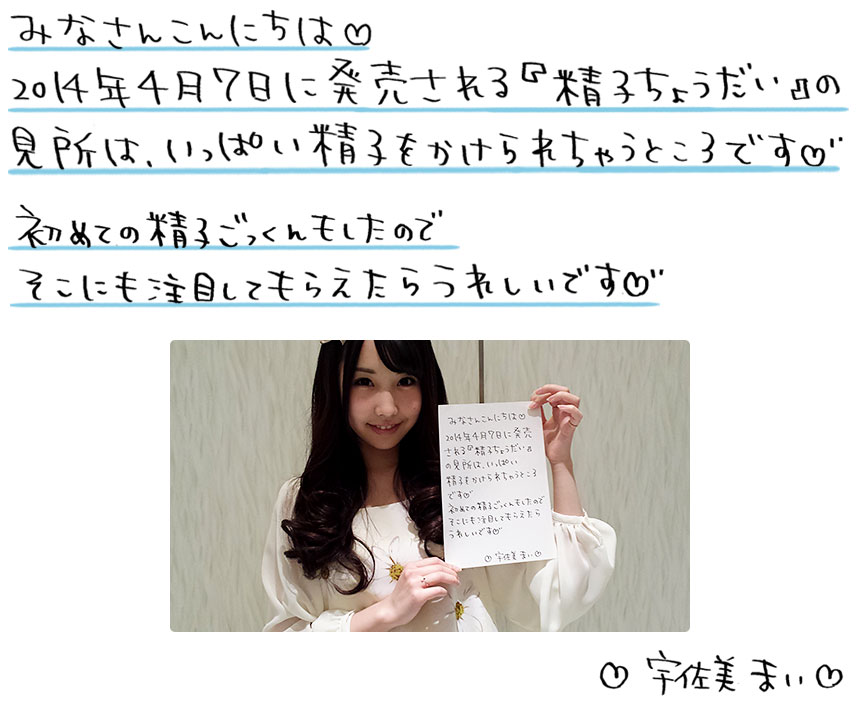 みなさんこんにちは♡
2014年4月7日に発売される『精子ちょうだい』の
見所は、いっぱい精子をかけられちゃうところです♡"
初めての精子ごっくんもしたので
そこにも注目してもらえたらうれしいです♡"
みなさんこんにちは♡
2014年4月7日に発売
される『精子ちょうだい』
の見所は、いっぱい
精子をかけられちゃうところ
です♡"
初めての精子ごっくんもしたので
そこにも注目してもらえたら
うれしいです♡"
♡宇佐美まい♡
♡ 宇佐美 まい♡